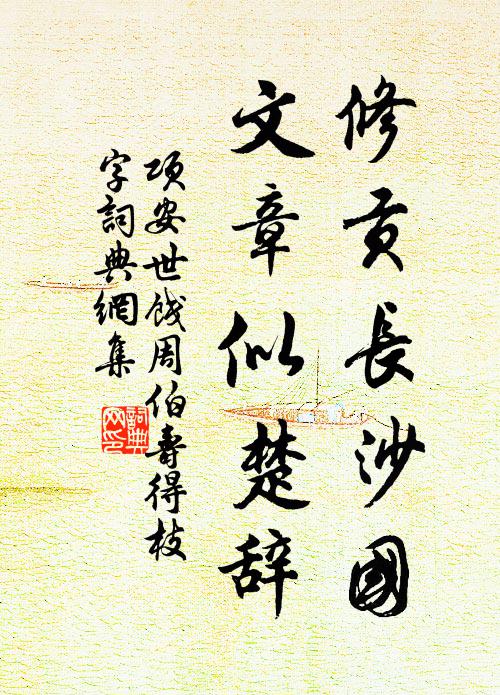 修贡長沙國
文章似楚辞
项安世餞周伯壽得枝
字詞典網集
詞典網印